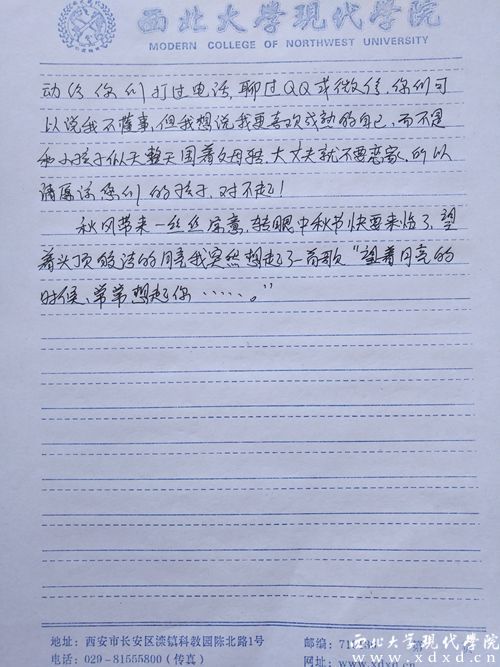 西北大学现代学院
MODERN COLLEGE OF NORTHWEST UNIVERSITY
动给你们打过电话,聊过QQ或微信,你们可
以说我不懂事,但我想说我更喜欢成熟的自己,而不是
和小孩子似天天整天围着父母转,大丈夫就不要恋家,所以
请原谅您们的孩子,对不起!
秋风带来一丝丝凉意,转眼中秋节快要来临了,望
着头顶皎洁的月亮我突然想起了一首歌“望着月亮的
时候,常常想起你……。”
地址:西安市长安区滦镇科教园陈北路1号
邮编:710
电话:029-81555800(传真)
网址:www.
西北大学现代学院
www.xdxd.cn